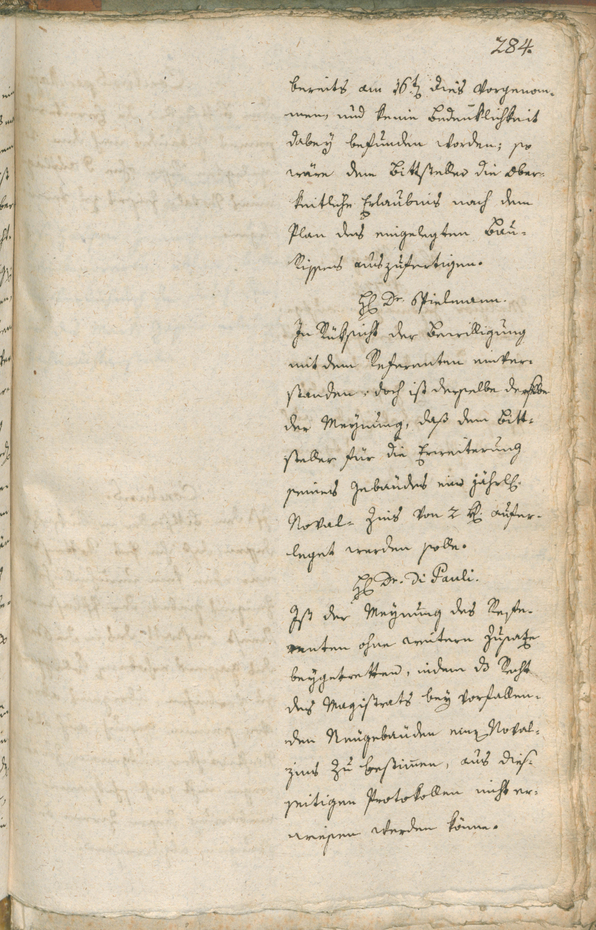 284.
bereits am 16t dies vorgenom-
men, und keine Bedenklichkeit
dabey befunden worden; so
wäre dem Bittsteller die Ober-
keitliche Erlaubnis nach dem
Plan des eingelegten Bau-
Risses auszufertigen.
H Dr. Spielmann.
In Rüksicht der Bewilligung
mit dem Referenten einver-
standen, doch ist derselbe
der Meynung, daß dem Bitt-
steller für die Erweiterung
seines Gebäudes ein jährl.
Noval- Zins von 2 x aufer-
leget werden solle.
H Dr. Di Pauli.
Ist der Meynung des Refe-
renten ohne weitern Zusatz
beygetretten, indem das Recht
des Magistrats bey vorfallen-
den Neugebäuden einen Noval-
zins zu bestimen, aus dies-
seitigen Protokollen nicht er-
wiesen werden könne.